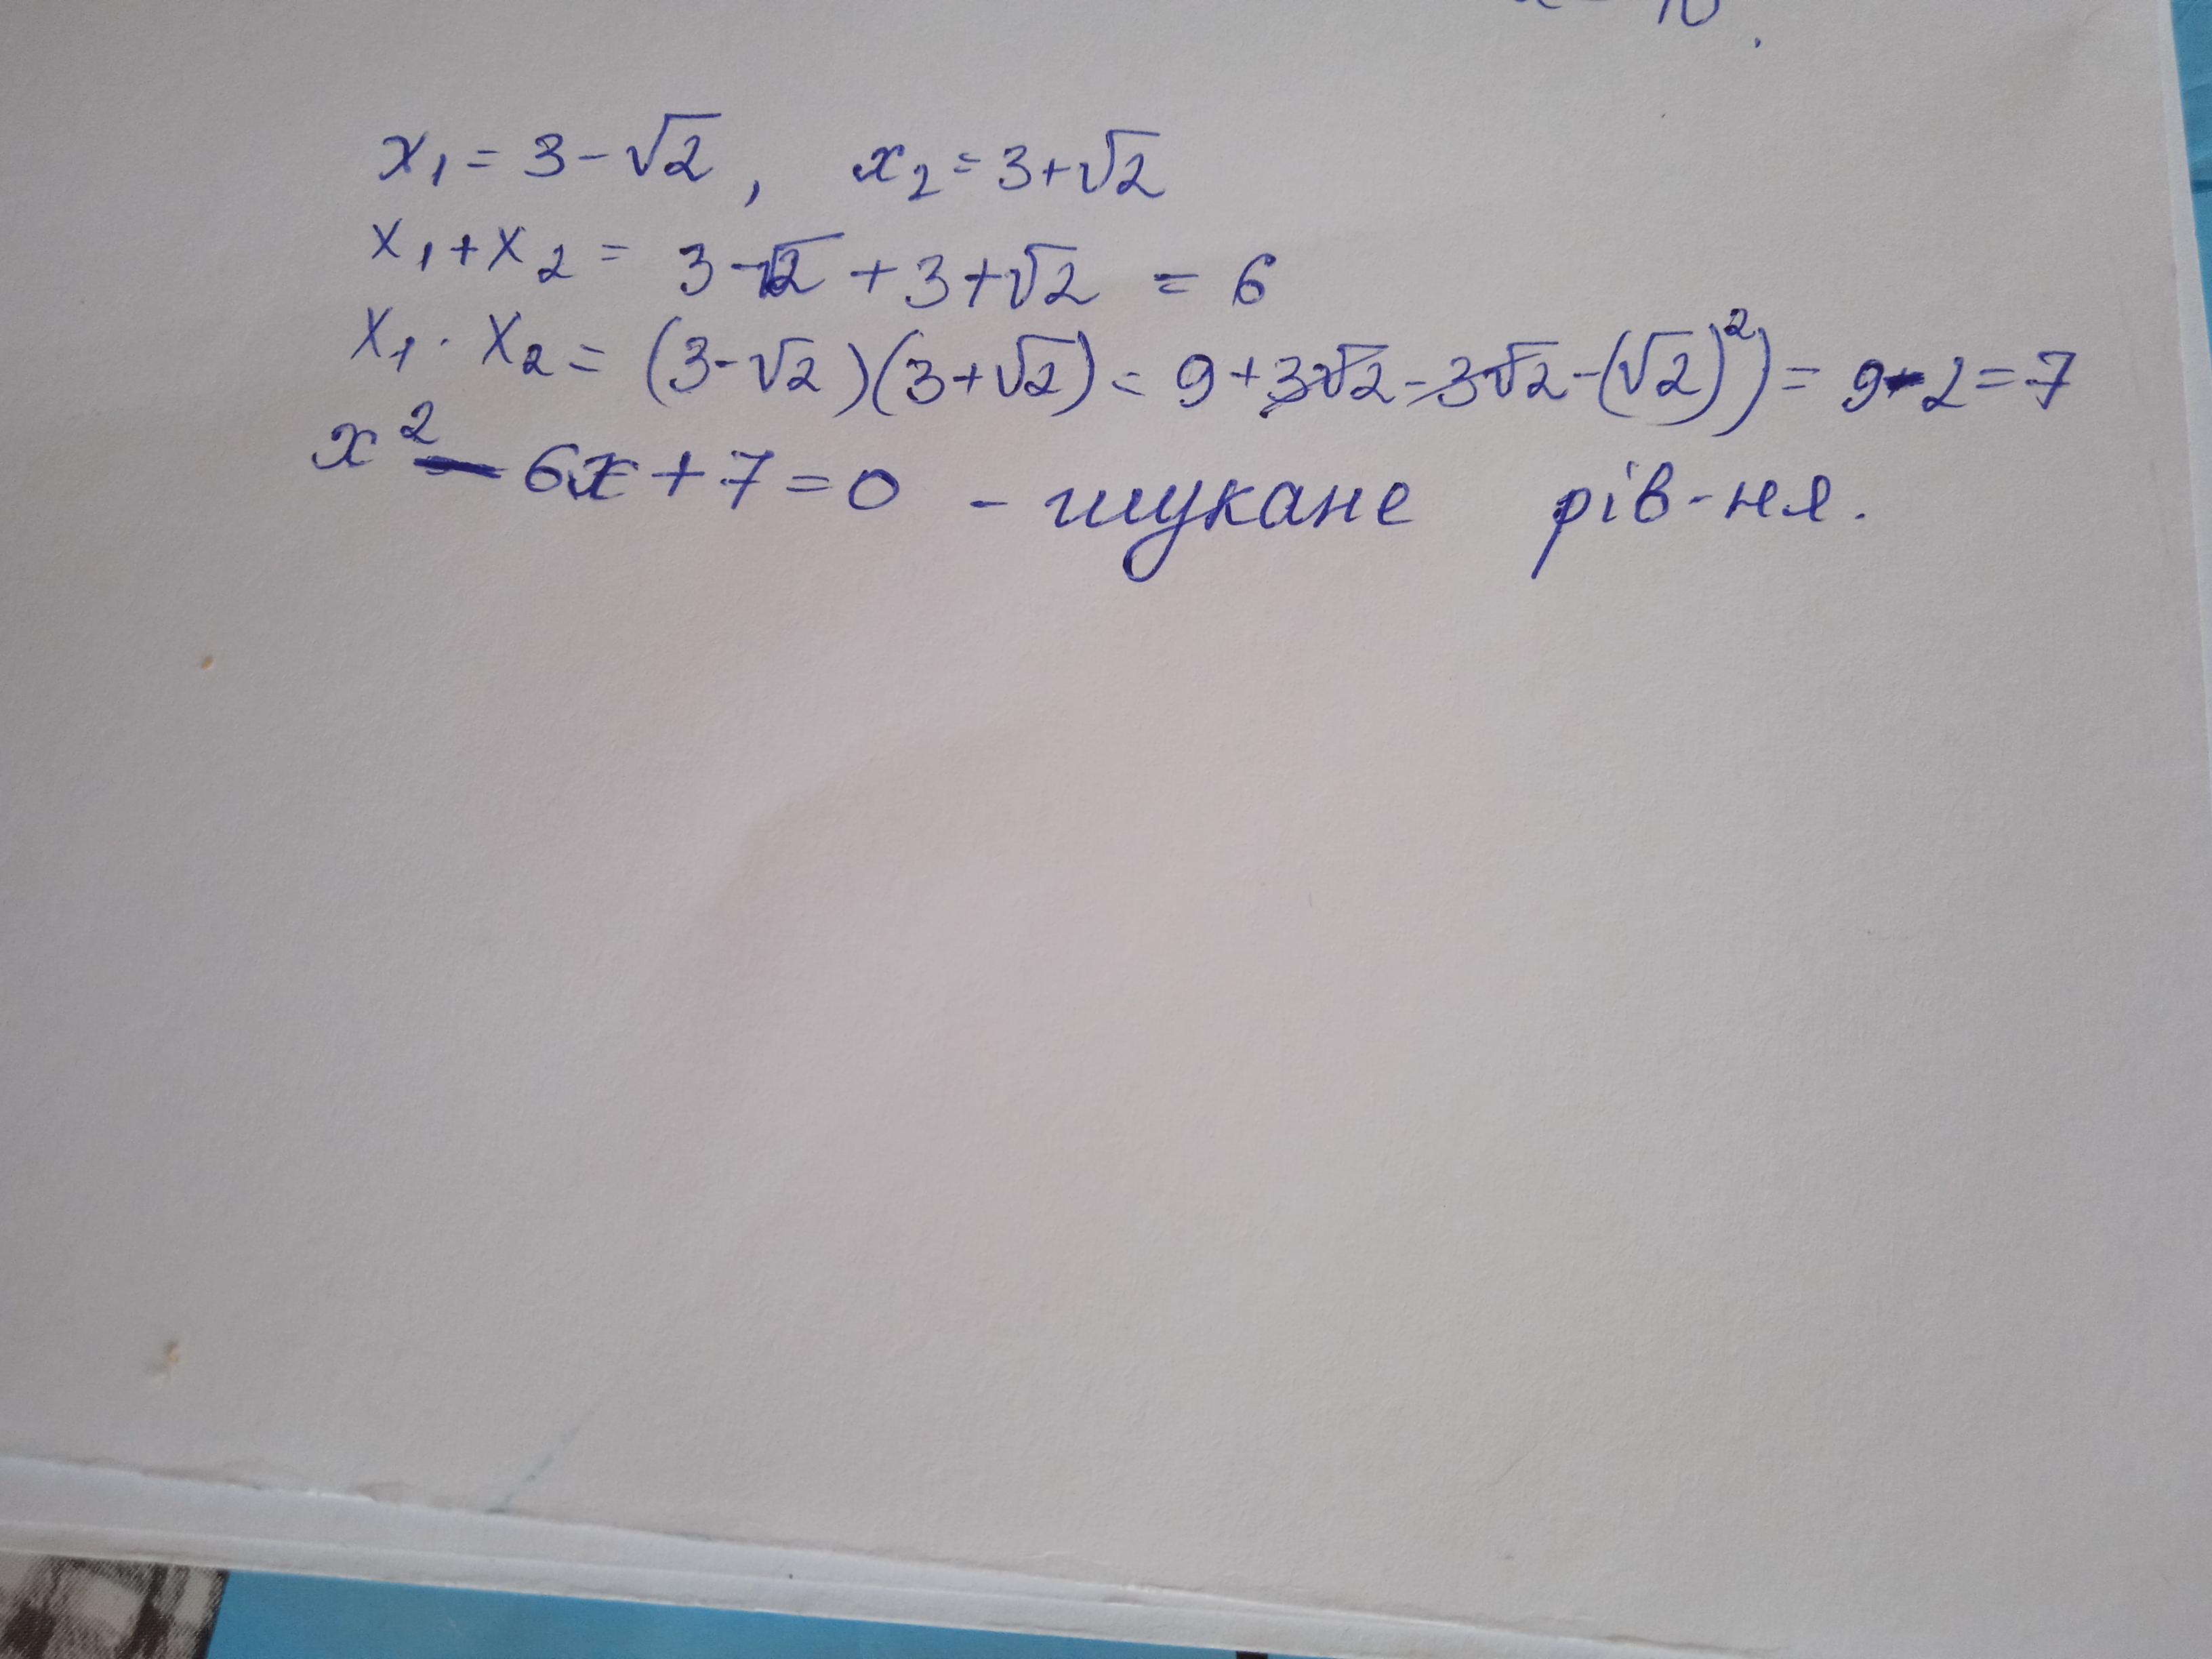 x₁ = 3 - √2, x₂ = 3 + √2
x₁ + x₂ = 3 - √2 + 3 + √2 = 6
x₁ · x₂ = (3 - √2)(3 + √2) = 9 + 3√2 - 3√2 - (√2)²) = 9 - 2 = 7
x² - 6x + 7 = 0 - шукане рів-ня.